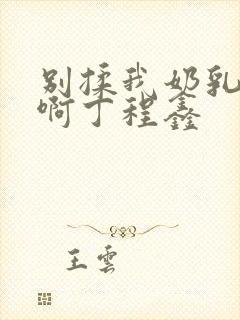 别揉我奶乳
啊丁程鑫
王雲